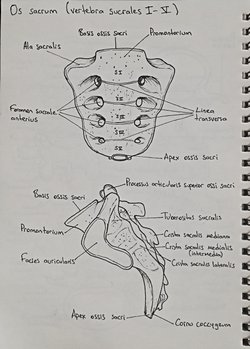 Os sacrum (vertebra sacrales I-V)
Basis ossis sacri
Promontorium
Ala sacralis
SI
SII
SIII
SIV
SV
Foramen sacrale
anterius
Linea
transversa
Apex ossis sacri
Processus articularis superior ossi sacri
Basis ossis sacri
Tuberositas sacralis
Promontorium
Crista sacralis mediana
Crista sacralis medialis
(intermedia)
Facies auricularis
Crista sacralis lateralis
Apex ossis sacri
Cornu coccygeum